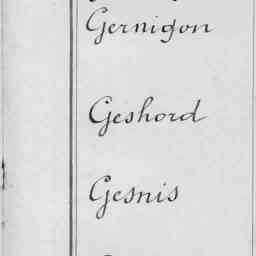 Gernigon
Geshord
Gesnis